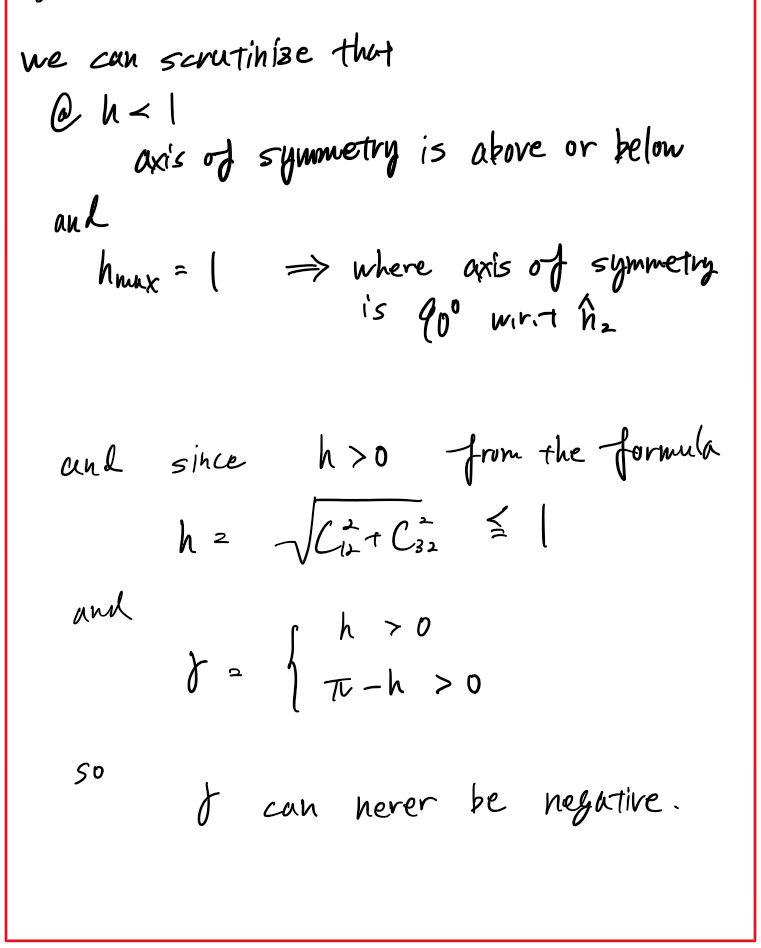 we can scrutinize that
@ h < 1
axis of symmetry is above or below
and
h_max = 1 ⇒ where axis of symmetry
is 90° w.r.t n̂₂
and since h > 0 from the formula
h = √(C₁₂² + C₃₂²) ≦ 1
and
γ = { h > 0
π - h > 0
so
γ can never be negative.